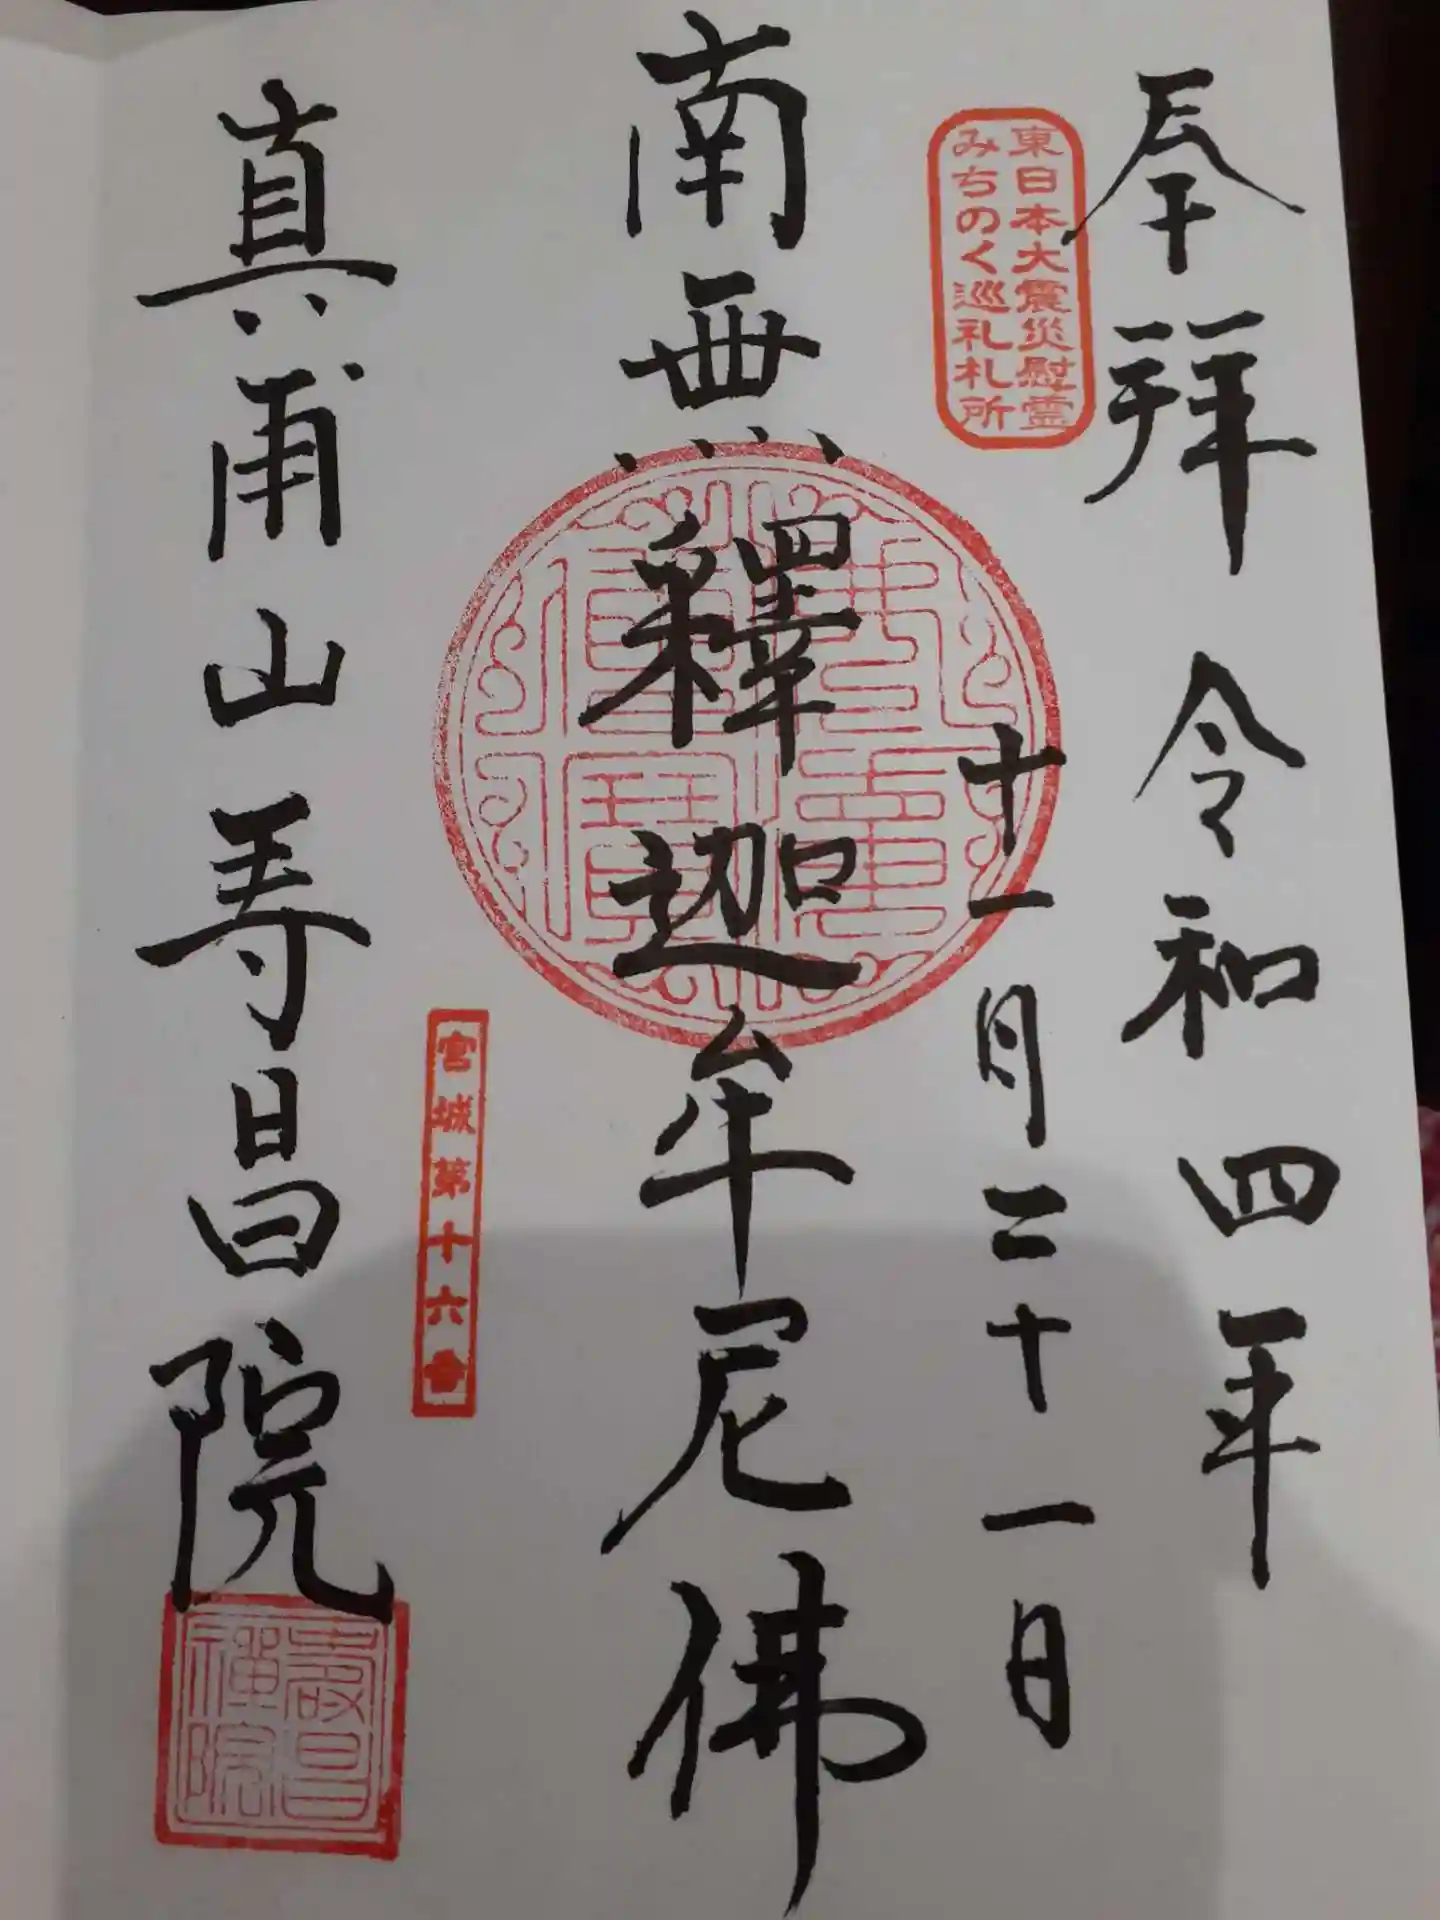 奉拝 令和四年
東日本大震災慰霊
みちのく巡礼札所
十一月二十一日
南無釋迦牟尼佛
宮城第十六番
真甫山寿昌院
壽昌
禅院